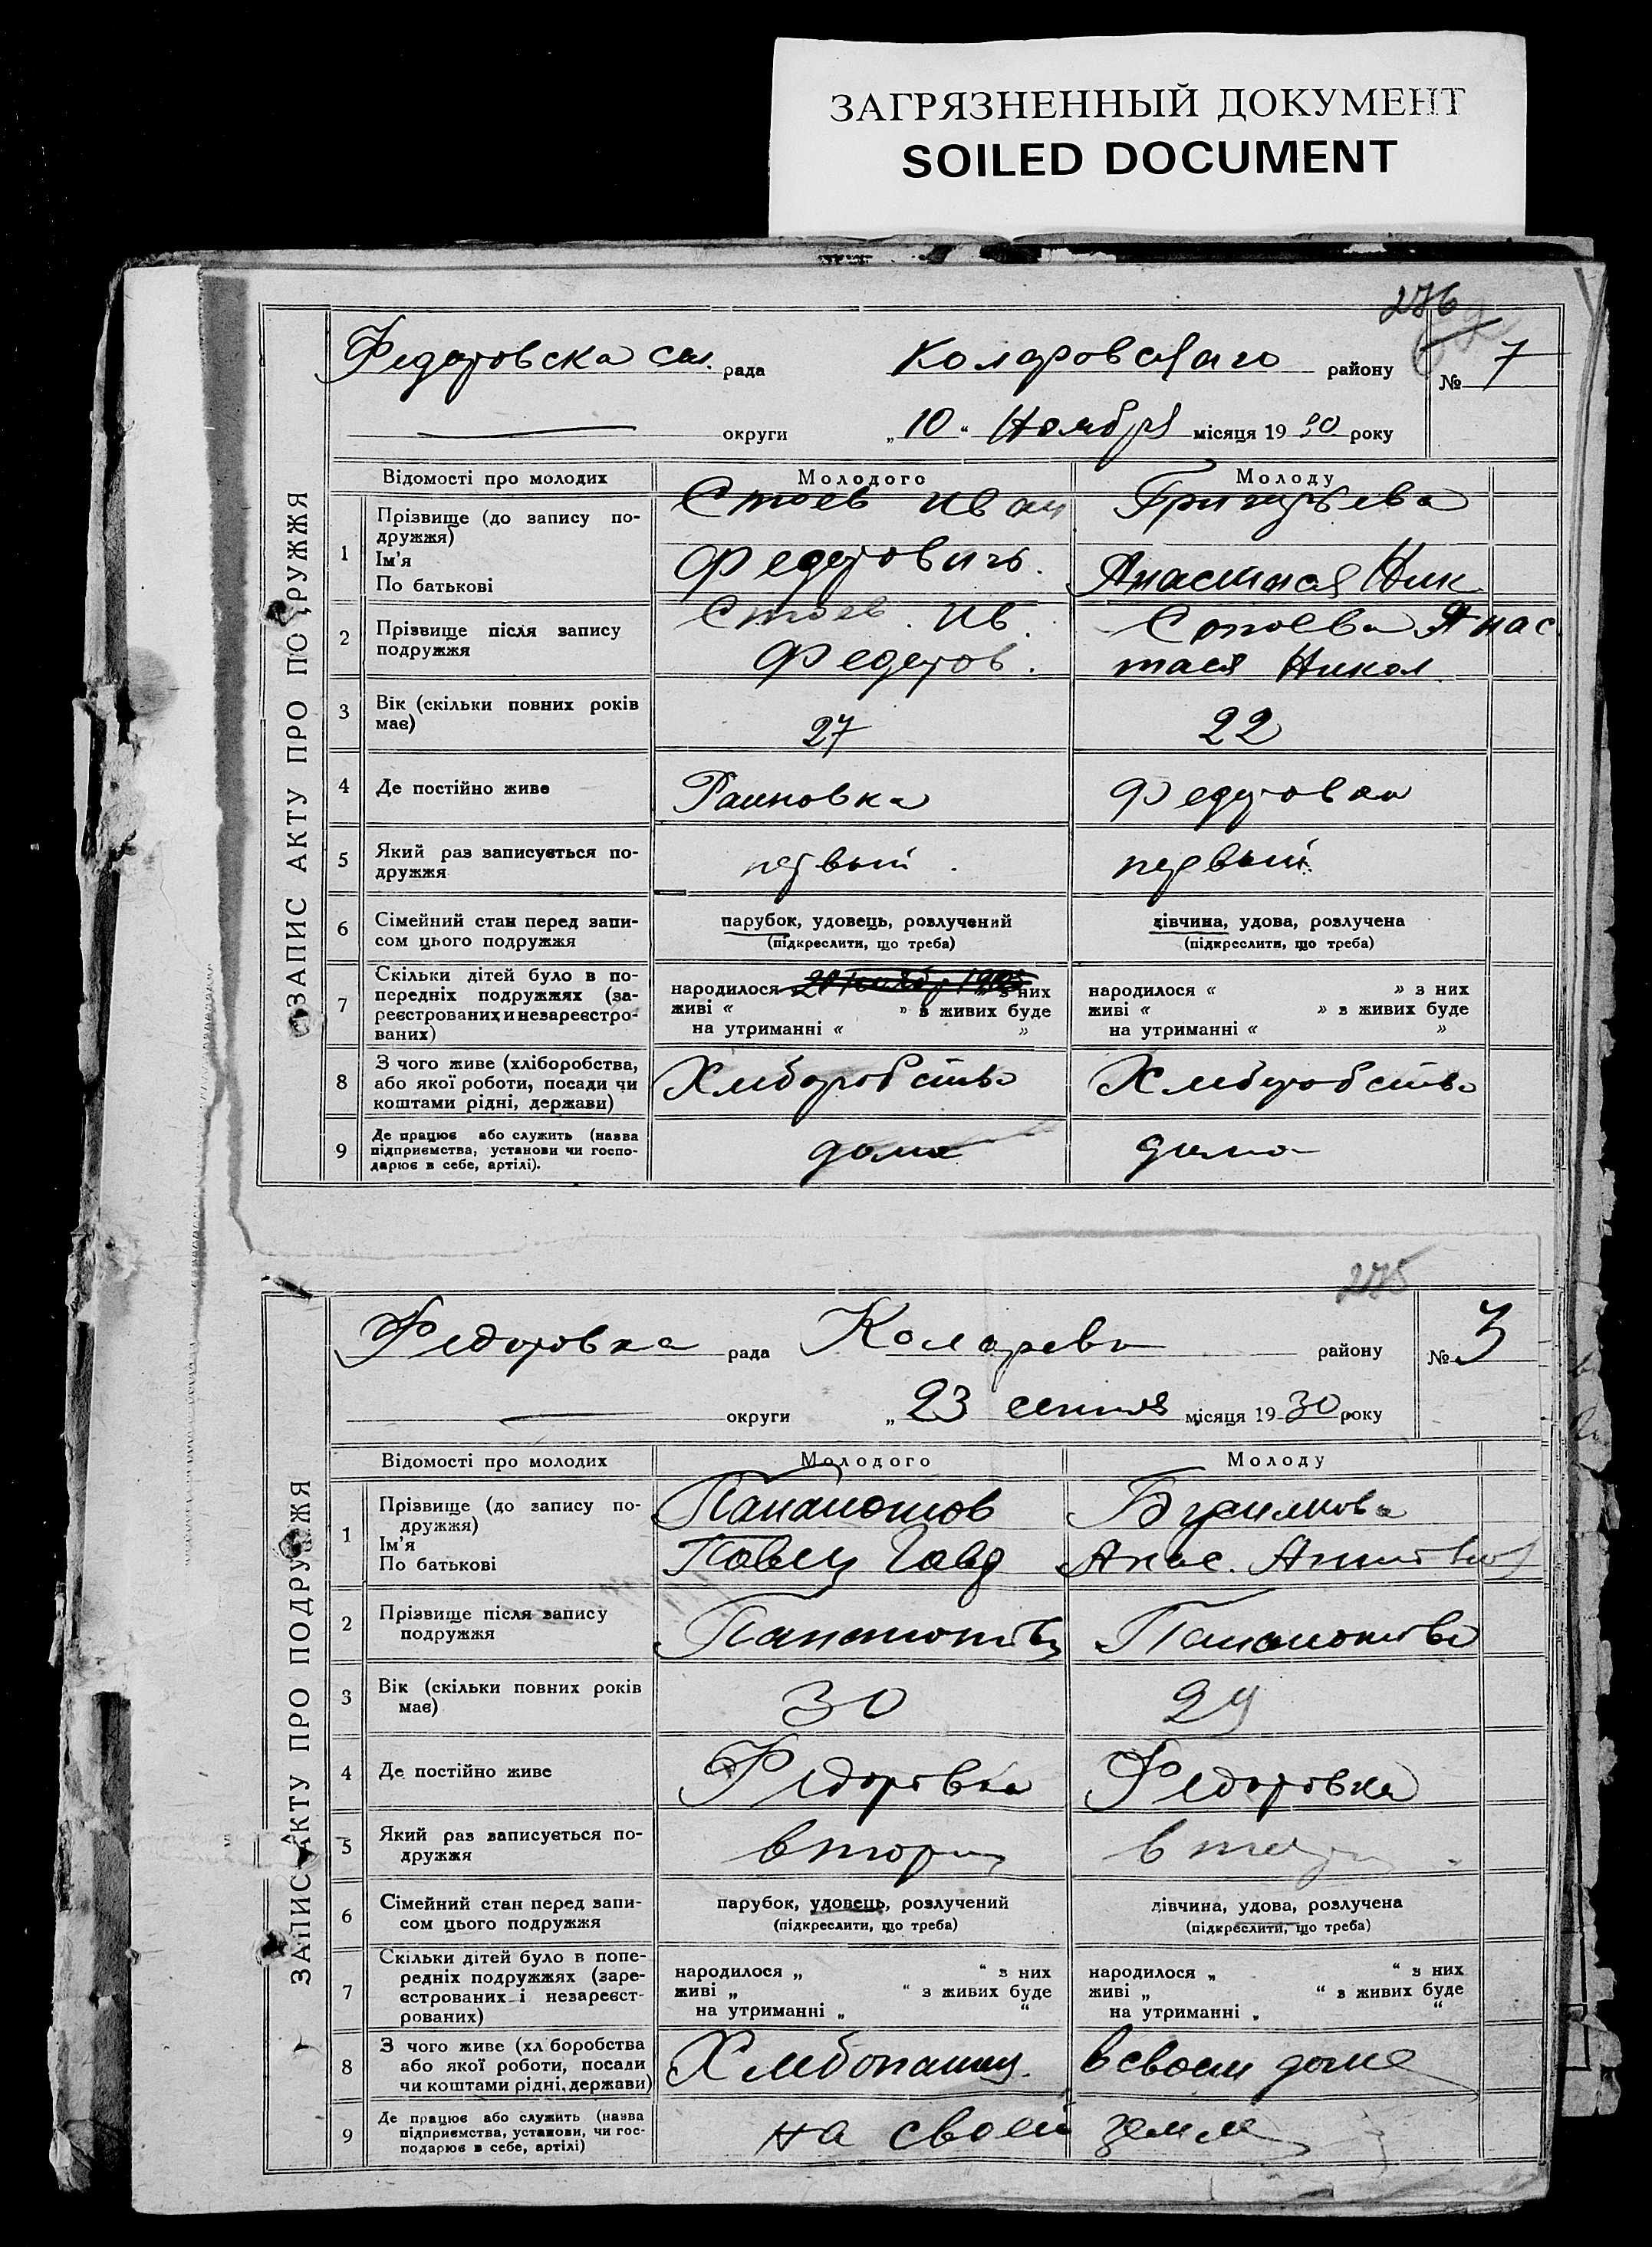 ЗАГРЯЗНЕННЫЙ ДОКУМЕНТ
SOILED DOCUMENT
276
ЗАПИС АКТУ ПРО ПОДРУЖЖЯ
Федоровска сел. рада Коларовскаго району № 7
округи „10“ Ноября місяця 1930 року
Відомості про молодих Молодого Молоду
1 Прізвище (до запису по-
дружжя)
Ім'я
По батькові
Стоев Иван
Федорович.
Григорьева
Анастасия Ник
2 Прізвище після запису
подружжя
Стоев. Ив.
Федоров.
Стоева Анас
тасия Никол.
3 Вік (скільки повних років
має)
27 22
4 Де постійно живе Раиновка Федоровка
5 Який раз записується по-
дружжя
первый. первый.
6 Сімейний стан перед запи-
сом цього подружжя
парубок, удовець, розлучений
(підкреслити, що треба)
дівчина, удова, розлучена
(підкреслити, що треба)
7 Скільки дітей було в по-
передніх подружжях (за-
реєстрованих и незареєстро-
ваних)
народилося » з них
живі « » з живих буде
на утриманні « »
народилося « » з них
живі « » з живих буде
на утриманні « »
8 З чого живе (хліборобства,
або якої роботи, посади чи
коштами рідні, держави)
Хлеборобство Хлеборобство
9 Де працює або служить (назва
підприємства, установи чи госпо-
дарює в себе, артілі).
дома дома
275
ЗАПИС АКТУ ПРО ПОДРУЖЖЯ
Федоровка рада Коларовк району № 3
округи „23 сентяб місяця 1930 року
Відомості про молодих Молодого Молоду
1 Прізвище (до запису по-
дружжя)
Ім'я
По батькові
Папанотов
Павел
Анас.
2 Прізвище після запису
подружжя
3 Вік (скільки повних років
має)
30 29
4 Де постійно живе Федоровка Федоровка
5 Який раз записується по-
дружжя
втор втор
6 Сімейний стан перед запи-
сом цього подружжя
парубок, удовець, розлучений
(підкреслити, що треба)
дівчина, удова, розлучена
(підкреслити, що треба)
7 Скільки дітей було в попе-
редніх подружжях (заре-
єстрованих і незареєст-
рованих)
народилося „ “ з них
живі „ “ з живих буде
на утриманні „ “
народилося „ “ з них
живі „ “ з живих буде
на утриманні „ “
8 З чого живе (хл боробства
або якої роботи, посади
чи коштами рідні, держави)
Хлебопашец. в своем доме
9 Де працює або служить (назва
підприємства, установи, чи гос-
подарює в себе, артілі)
на своей земле